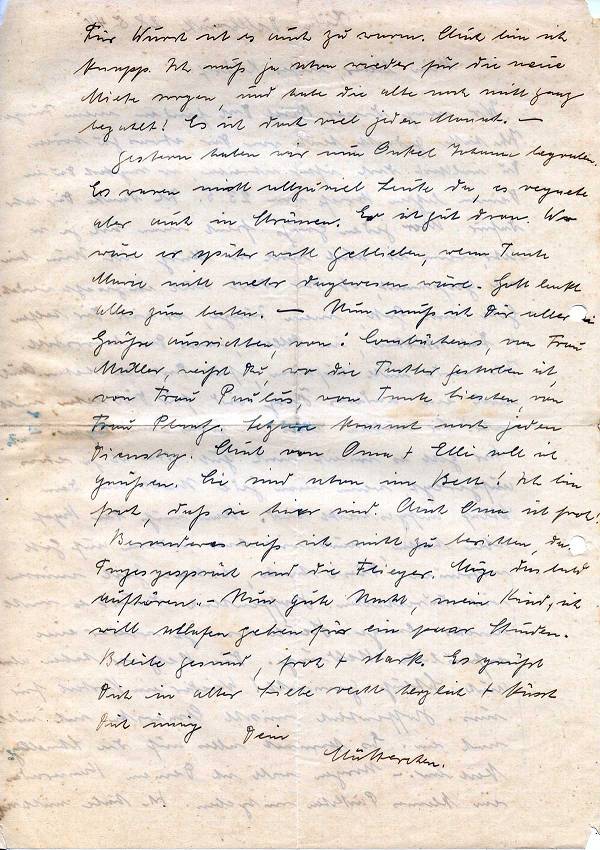 Für Wurst ist es auch zu warm. Auch bin ich
knapp. Ich muß ja schon wieder für die neue
Miete sorgen, und habe die alte noch nicht ganz
bezahlt! Es ist doch viel jeden Monat. —
Gestern haben wir nun Onkel Johann begraben.
Es waren nicht allzuviel Leute da, es regnete
aber auch in Strömen. Er ist gut dran. Wo
wäre er später wohl geblieben, wenn Tante
Marie nicht mehr dagewesen wäre. Gott lenkt
alles zum besten. — Nun muß ich Dir allerlei
Grüße ausrichten, von: von Frau
Müller, weißt Du, wo die Tochter gestorben ist,
von Frau Paulus, von Tante Lieschen, von
Frau Letztere kommt noch jeden
Dienstag. Auch von Oma + Elli soll ich
grüßen. Sie sind schon im Bett! Ich bin
froh, daß sie hier sind. Auch Oma ist froh!
Besonderes weiß ich nicht zu berichten, das
Tagesgespräch sind die Flieger. Möge das bald
aufhören. – Nun gute Nacht, mein Kind, ich
will schlafen gehen für ein paar Stunden.
Bleibe gesund, froh + stark. Es grüßt
Dich in alter Liebe recht herzlich + küsst
Dich innig Dein
Mütterchen.